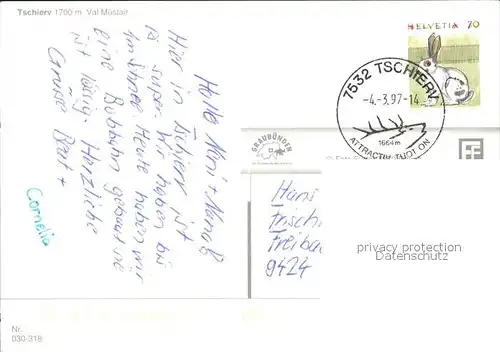 Tschierv 1700 m Val Müstair
Hallo Neni + Nana
Hier in Tschierv ist
es super. Wir haben bis
Schnee. Heute haben wir
eine Bobbahn gebaut sie
ist lässig. Herzliche
Grüsse Beat +
Cornelia
Nr.
030-318
HELVETIA 70
7532 TSCHIERV
-4.-3.97-14
1664m
ATTRACTIV TUOT ON
GRAUBÜNDEN
Hans
Frisch
Freiba
9424
privacy protection
Datenschutz